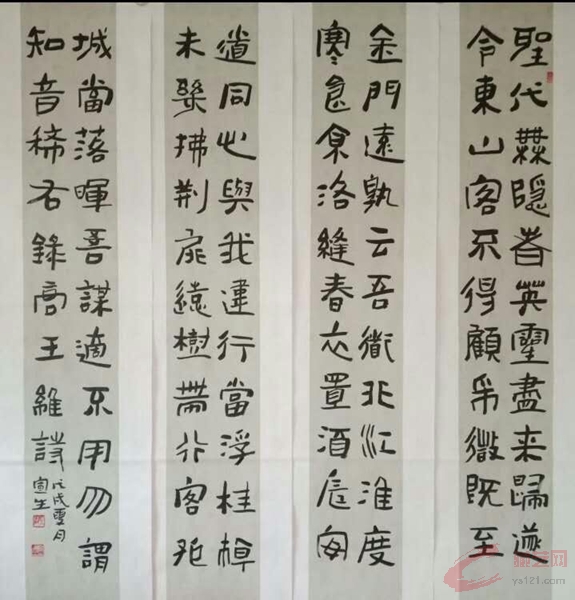 聖代無隱者英靈盡来歸遂
令東山客不得顧采薇既至
金門遠孰云吾衜非江淮度
寒食京洛縫春衣置酒長安
道同心與我違行當浮桂棹
未幾拂荊扉遠樹帶行客孤
城當落暉吾謀適不用勿謂
知音稀右錄唐王維詩
戊戌月
宣生
ys121.com